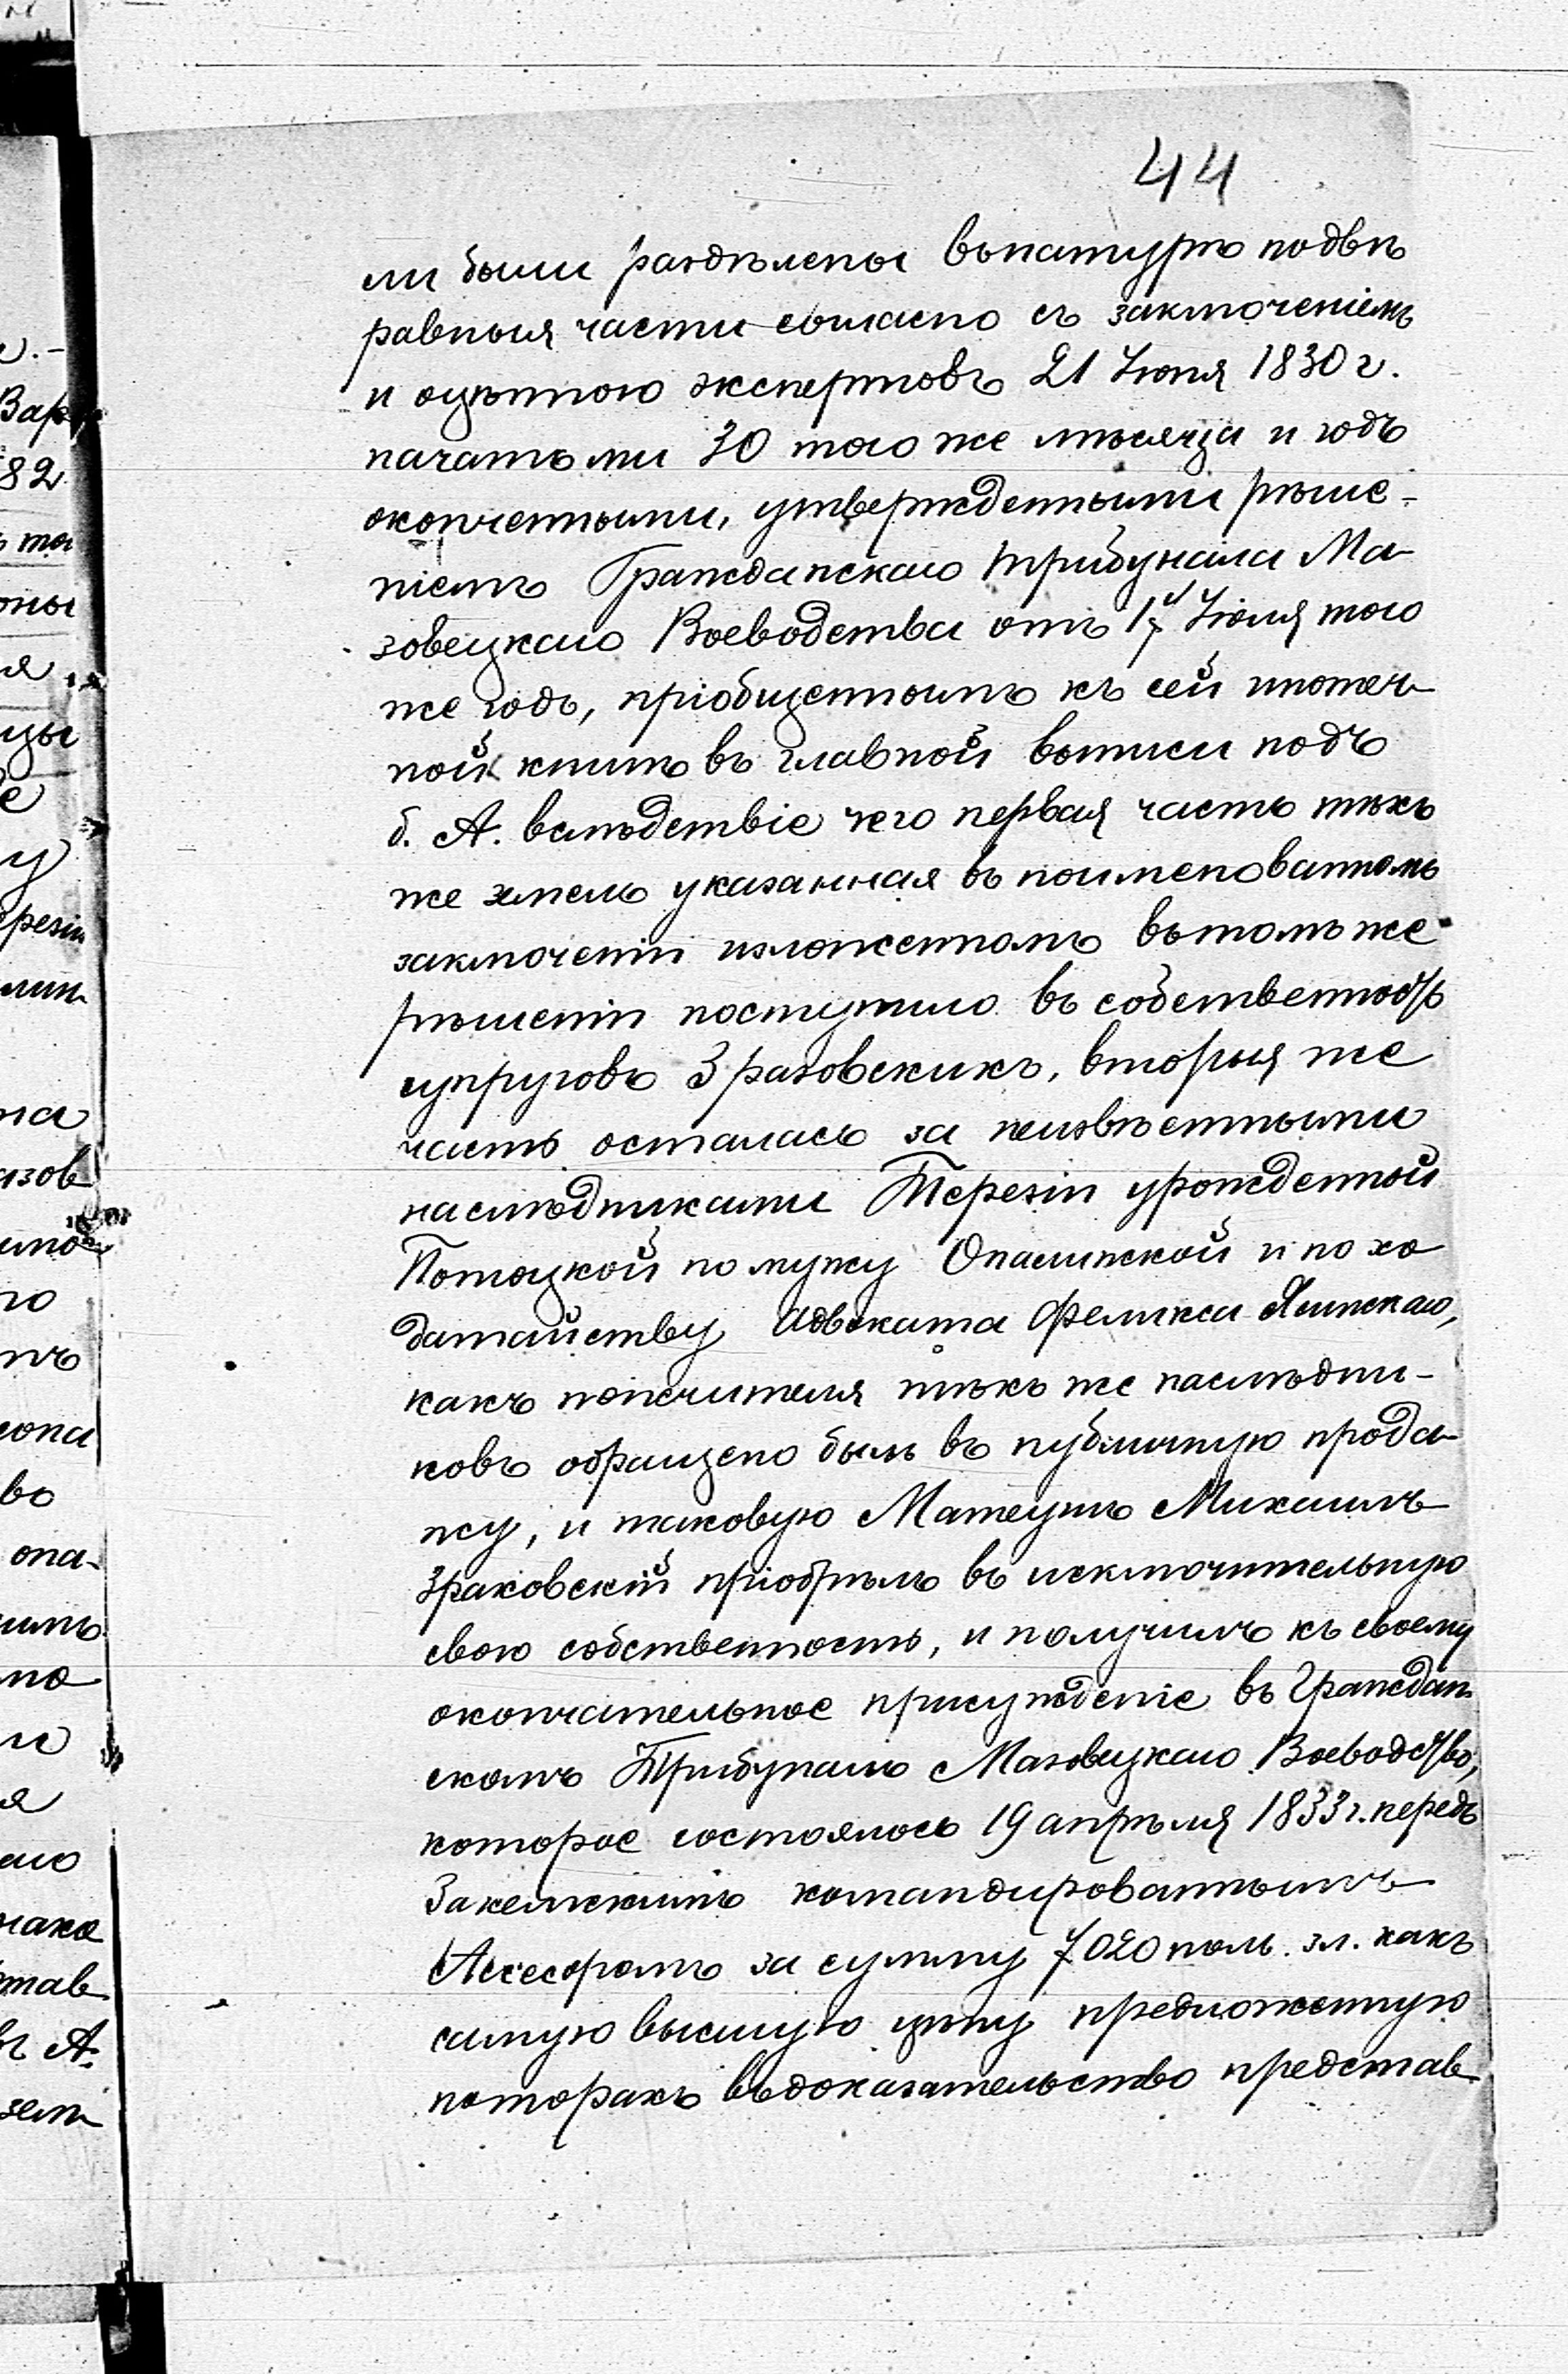 44
ли были раздѣлены въ натурѣ на двѣ
равныя части согласно съ заключеніемъ
и оцѣнкою экспертовъ 21 Іюня 1830 г.
начатыми 30 того же мѣсяца и годъ
оконченными, утвержденными рѣше-
ніемъ Гражданскаго Трибунала Ма-
зовецкаго Воеводства отъ 17 Іюля того
же годъ, пріобщеннымъ къ сей ипотеч-
ной книгѣ въ главной вотписи подъ
б. А. вслѣдствіе чего первая часть тѣхъ
же земель указанная въ поименованномъ
заключеніи изложенномъ въ томъ же
рѣшеніи поступило въ собственность
супруговъ Зраковскихъ, вторыя же
часть осталась за неизвѣстными
наслѣдниками Терезіи урожденной
Потоцкой по мужу Опалинской и по хо
датайству Адвоката Феликса Ясинскаго,
какъ попечителя тѣхъ же наслѣдни-
ковъ обращено былъ въ публичную прода-
жу, и таковую Матеушъ Михаилъ
Зраковскій пріобрѣлъ въ исключительную
свою собственность, и получилъ къ своему
окончательное присужденіе въ Граждан
скомъ Трибуналѣ Мазовецкаго Воеводство,
которое состоялось 19 апрѣля 1833 г. передъ
Закемскимъ командированнымъ
Ассесоромъ за сумму 7020 поль. зл. какъ
самую высшую цѣну предложенную
на торгахъ въ доказательство представ